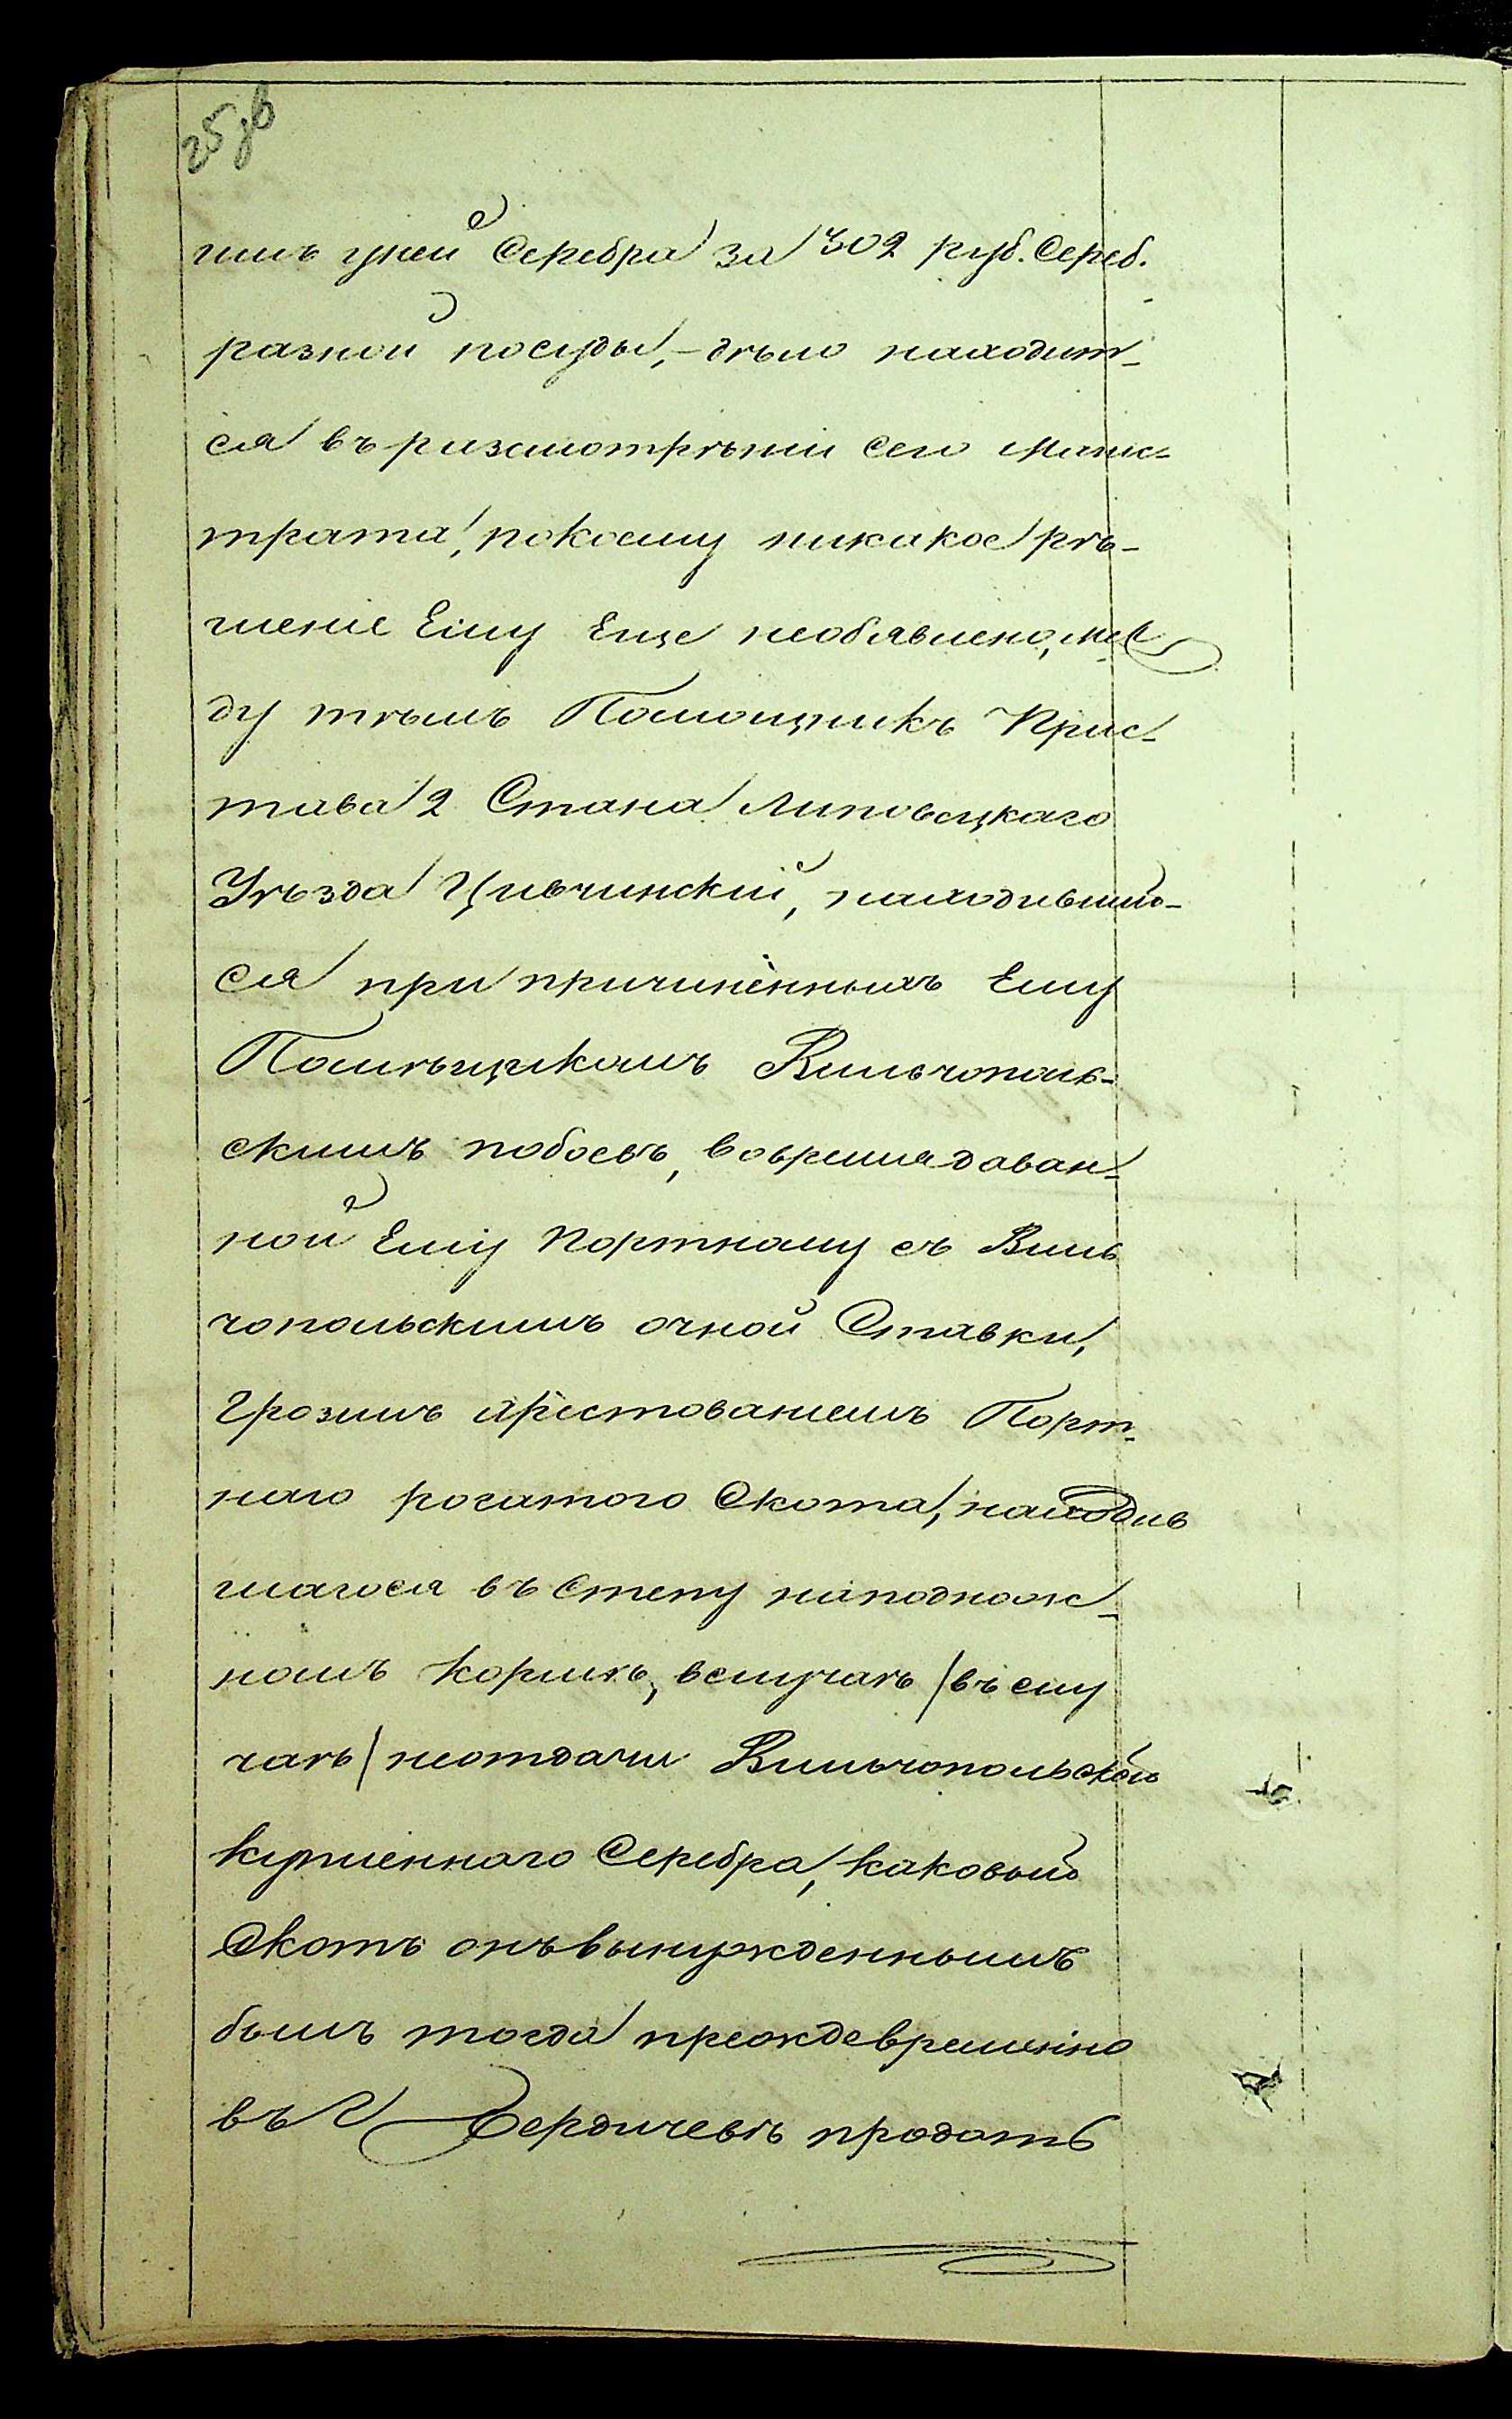 25 об
пилъ уней Серебра за 302 руб. Сереб.
разной посуды,- дѣло находит-
ся въ разсмотрѣніи сего Магис-
трата, покоему никакое рѣ-
шеніе Ему Еще необявлено, меж
ду тѣмъ Помощникъ Прис-
тава 2 Стана Липовецкаго
Уѣзда Цивчинскій, находившій-
ся при причиненныхъ Ему
Помѣщикомъ Вильчополь-
скимъ побоевъ, вовремя даван-
ной Ему Портному съ Виль
чопольскимъ очной Ставки,
грозилъ арестованіемъ Порт-
наго рогатого Скота, находив
шагося въ Степу наподнож-
номъ кормѣ, вслучаѣ /въ слу
чаѣ/ неотдачи Вильчопольской
купленного Серебра, каковый
Скотъ онъ вынужденнымъ
былъ тогда преждевременно
въ Г Бердичевѣ продать